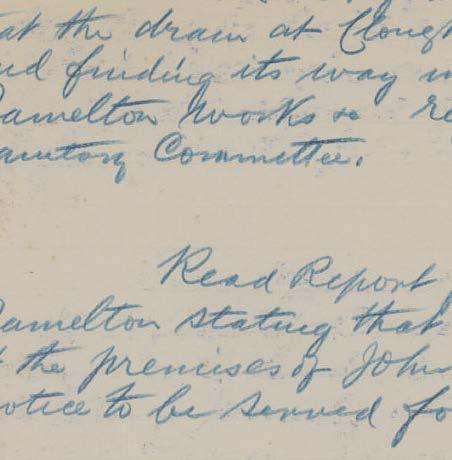 at the drain at Clough
nd finding its way in
amelton Works &
anitary Committee.
Read Report
amelton stating that
the premises of John
otice to be served fo